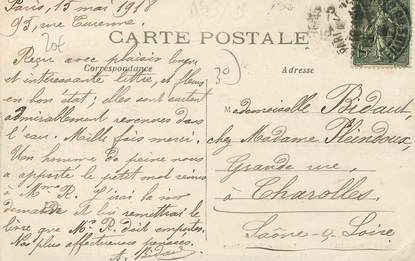 Paris, 15 mai 1918
93, rue Turenne.
20€
CARTE POSTALE
Correspondance
Adresse
30
Reçu avec plaisir longue
et intéressante lettre, et fleurs
en bon état ; elles sont surtout
admirablement revenues dans
l'eau. Mille fois merci.
Un homme de peine nous
a apporté le petit mot remis
à Mme R. J'irai la voir
demain et lui remettrai le
livre que Mr R. doit emporter.
Nos plus affectueuses pensées.
A. Bidaut
Mademoiselle Bidaut,
chez Madame Pleindoux,
Grande rue,
à Charolles
Saône-&-Loire